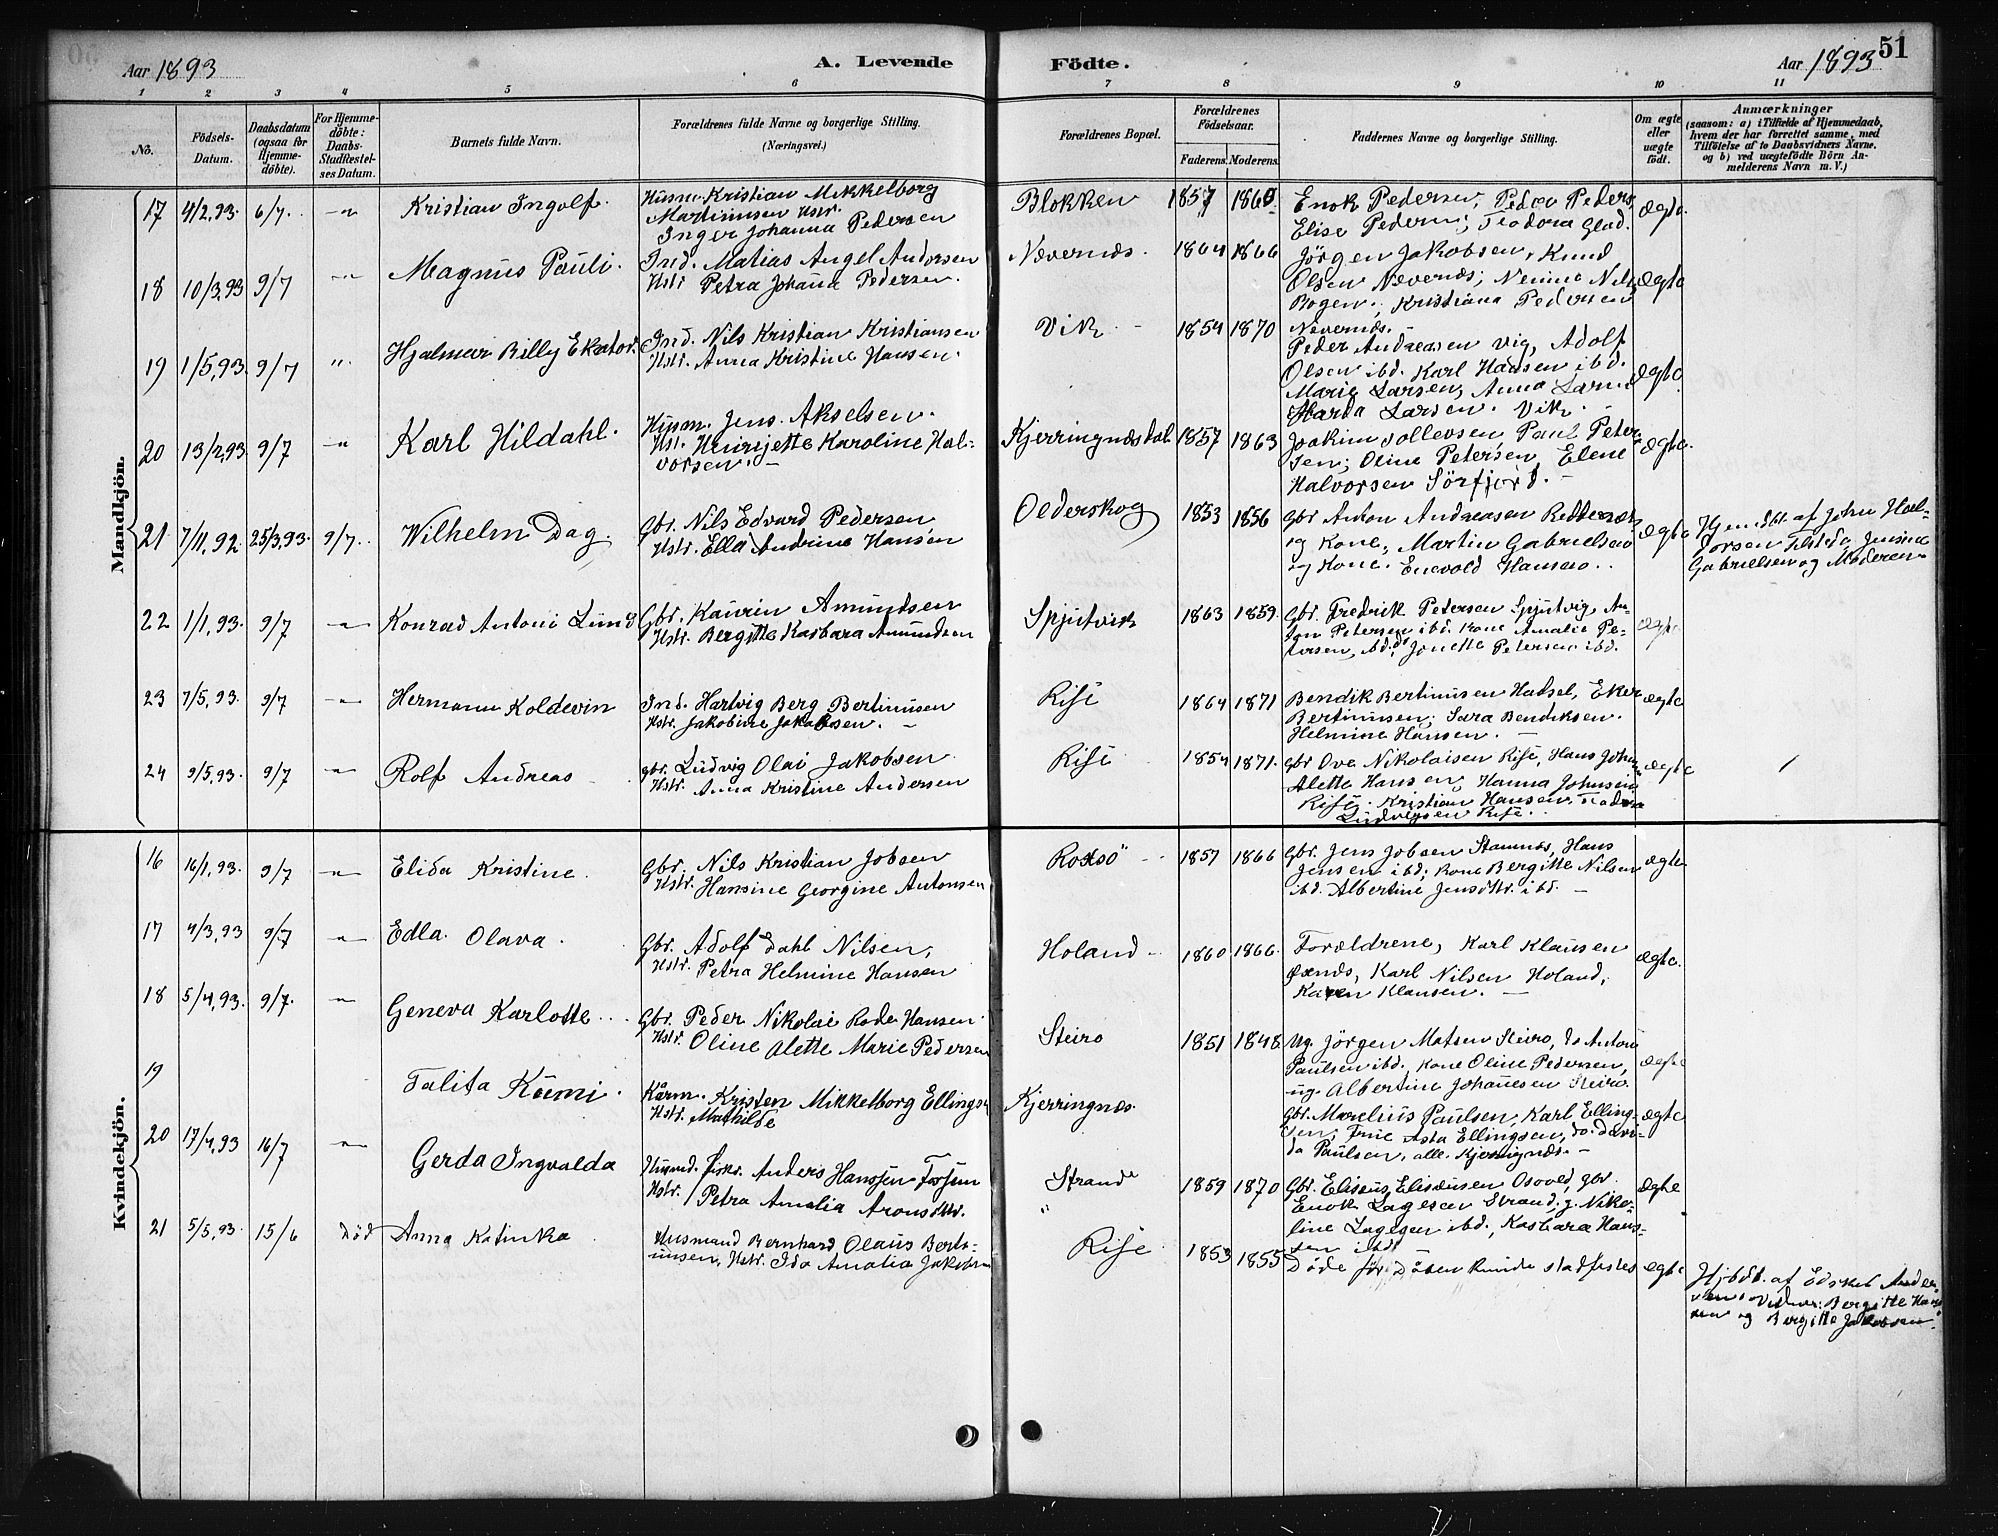 Aar 1893
A. Levende
Födte.
Aar 1893
51
1 2 3 4 5 6 7 8 9 10 11
No.
Födsels-Datum.
Daabsdatum (ogsaa for Hjemme-døbte).
For Hjemme-døbte: Daabs-Stadfæstel-ses Datum.
Barnets fulde Navn.
Forældrenes fulde Navne og borgerlige Stilling.
(Næringsvei.)
Forældrenes Bopæl.
Forældrenes Fødselsaar.
Faderens. Moderens.
Faddernes Navne og borgerlige Stilling.
Om ægte eller uægte født.
Anmærkninger
(saasom: a) i Tilfælde af Hjemmedaab, hvem der har forrettet samme, med Tilføielse af to Daabsvidners Navne, og b) ved uægtefødte Börn An-melderens Navn m. V.)
Mandkjön.
17 4/2,93. 6/7. -"- Kristian Ingolf. Husm. Kristian Mikkelborg
Martinusen Hstr.
Inger Johanna Pedersen
Blokken 1857 1860. Enok Pedersen, Peder Peders,
Elise Pedersen; Teodora Glad. ægte.
18 10/3,93 9/7 -"- Magnus Pauli. Ind. Matias Angel Andersen
Hstr Petra Johana Pedersen.
Nævernæs. 1864 1866 Jörgen Jakobsen, Knud
Olsen Nevernæs; Nenine Nils
Bogen; Kristiana Pedersen
Nevernæs. ægte
19 1/5,93. 9/7 " Hjalmar Billy Ekator. Ind. Nils Kristian Kristiansen
Hstr. Anna Kristine Hansen.
Vik - 1854 1870 Peder Andreasen Vig, Adolf
Olsen ibd. Karl Hansen ibd.
Marie Larsen, Anna Larsen
Marta Larsen. Vik. ægte
20 13/2,93 9/7 " Karl Hildahl. Husm. Jens Akselsen.
Hst. Henrijette Karoline Hal-
vorsen. -
Kjerringnesdal 1857 1863 Joakim Tollevsen, Paul Peter
sen; Oline Petersen, Elene
Halvorsen Sörfjord. - ægte.
21 7/11,92. 25/3,93. 9/7. Wilhelm Dag. Gbr. Nils Edvard Pedersen
Hstr. Ella Andrine Hansen
Olderskog 1853 1856 Gbr Anton Andreasen
og Kone, Martin Gabrielsen
og Kone. Enevold Hansen. ægte
Hjemdbt. af John Hal-
vorsen Jensine
Gabrielsen og Moderen
22 1/1,93. 9/7 -"- Konrad Antoni Lund Gbr. Kaurin Amundsen
Hstr. Bergitte Karbara Amundsen
Spjutvik 1863 1859. Gbr. Fredrik Petersen Spjutvig, An-
ton Petersen ibd. Kone Amalie Pe-
tersen, ibd. Jonette Petersen ibd. ægte
23 7/5,93. 9/7 -"- Hermann Koldevin Ind. Hartvig Berg Bertinusen
Hstr. Jakobine Jakobsen. -
Rise 1864 1871 Bendik Bertinusen Hadsel, Eker
Bertinusen; Sara Bendiksen.
Helmine Hansen. - ægte
24 9/5,93. 9/7 -"- Rolf Andreas Gbr. Ludvig Olai Jakobsen
Hstr. Anna Kristine Andersen
Rise 1854 1871. Gbr Ove Nikolaisen Rise, Hans Johnsen
Alette Hansen, Hanna Johnsen
Rise. Kristian Hansen, Teodora
Ludvigsen Rise. ægte
Kvindekjön.
16 16/1,93. 9/7 -"- Elida Kristine. Gbr. Nils Kristian Jobsen
Hstr. Hansine Georgine Antonsen
Roksö 1857 1866 Gbr. Jens Jobsen Stamnes, Hans
Jensen ibd; Kone Bergitte Nilsen
ibd. Albertine Jensdtr. ibd. - ægte
17 4/3,93 9/7 -"- Edla Olava. Gbr. Adolf Dahl Nilsen,
Hstr. Petra Helmine Hansen
Holand - 1860 1866. Forældrene, Karl Klausen
Karl Nilsen Holand,
Karen Klausen. - ægte.
18 5/4,93. 9/7. -"- Geneva Karlotte. Gbr. Peder Nikolai Rode Hansen
Hstr. Oline Alette Marie Pedersen
Steiro 1851 1848. Ug. Jörgen Matsen Steiro, do Anton
Paulsen ibd. Kone Oline Pedersen,
ug. Albertine Johansen Steiro. ægte
19 Talita Kumi. Kårm. Kristen Mikkelborg Ellings
Hstr. Mathilde
Kjerringnæs. Gbr. Marelius Paulsen, Karl Elling-
sen, Frue Asta Ellingsen, do. Davi-
da Paulsen, alle Kjerringnæs. - ægte
20 17/4,93 16/7 -"- Gerda Ingvalda Husmd. Anders Hanssen Fossum
Hstr. Petra Amalia Aronsdtr.
Strand 1859 1870 Gbr. Elisæus Elisæusen Osvold, gbr.
Enok Lagesen Strand; g. Niko-
line Lagesen ibd., Kasbara Hans-
sen ibd. ægte
21 5/5,93. 15/6 Död Anna Katinka Husmand Bernhard Olaus Berti-
nusen, Hstr. Ida Amalia Jakobsen
Rise 1853 1855 Döde för Dåben kunde stadfæstes ægte
Hjdbt. af Edsket Ander
sen Vidner: Bergitte Han
sen og Bergitte Jakobsen.